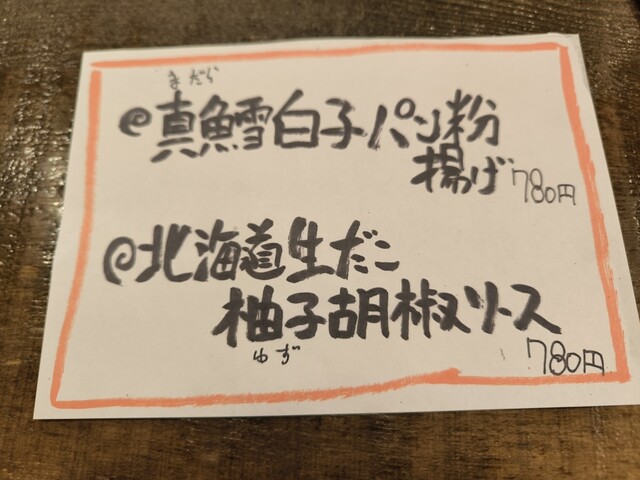 まだら
@真鱈白子パン粉
揚げ780円
@北海道生だこ
柚子胡椒ソース
ゆず
780円